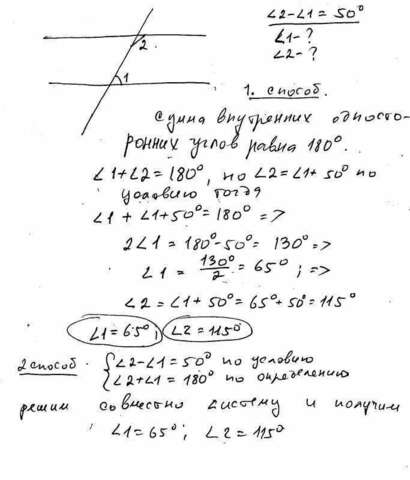 ∠2-∠1=50°
∠1-?
∠2-?
2
1
1. способ.
Сумма внутренних односто-
ронних углов равна 180°.
∠1+∠2=180°, но ∠2=∠1+50° по
условию тогда
∠1+∠1+50°=180° =>
2∠1=180°-50°=130° =>
∠1=130°/2=65°; =>
∠2=∠1+50°=65°+50°=115°
∠1=65°; ∠2=115°
2 способ. {∠2-∠1=50° по условию
∠2+∠1=180° по определению
решим совместно систему и получим
∠1=65°; ∠2=115°